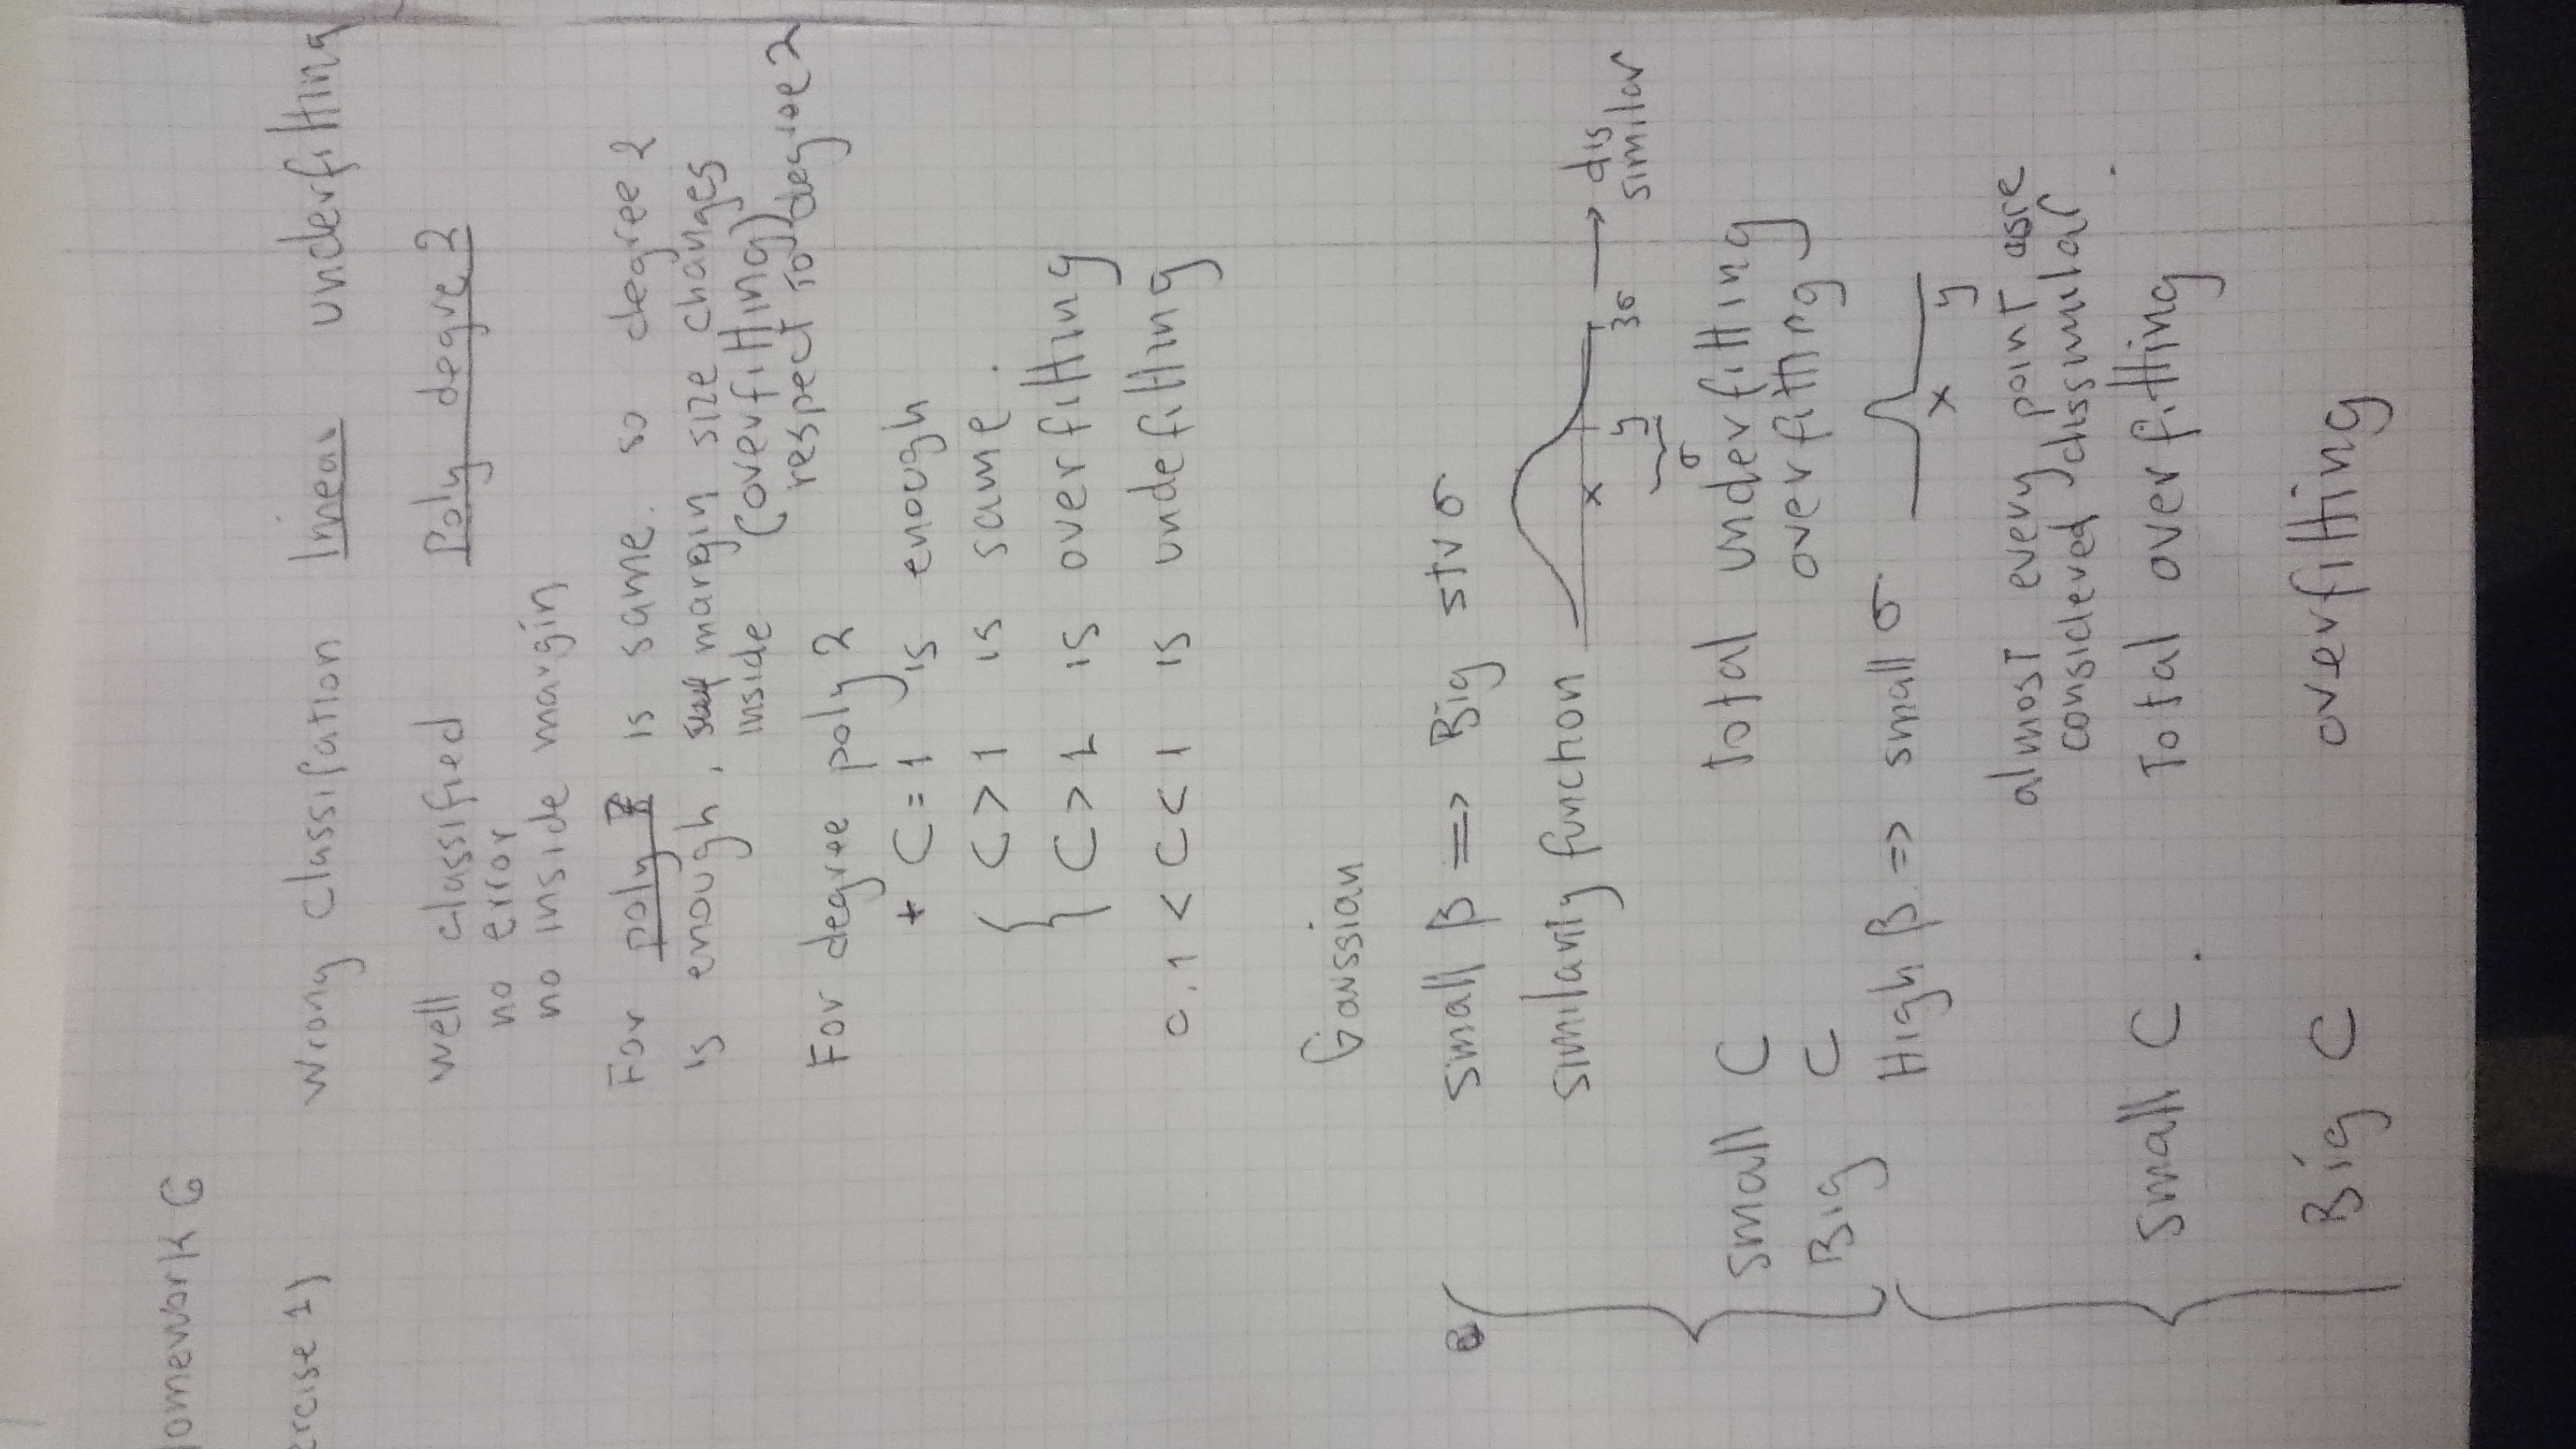 omework 6
ercise 1) Wrong classifation linear underfitting
well classified Poly degre 2
no error
no inside margin
For poly is same. so degree 2
is enough, margin size changes
inside (overfitting)
respect to degree 2
For degree poly 2
+ C = 1 is enough
C > 1 is same.
C > 1 is overfitting
0.1 < C < 1 is undefitting
Gaussian
small β => Big stv σ
similarity function x y 3σ → dis
similar
σ
small C total underfitting
Big C overfitting
High β => small σ
x y
almost every point are
considered dissimilar
small C. Total overfitting
Big C overfitting